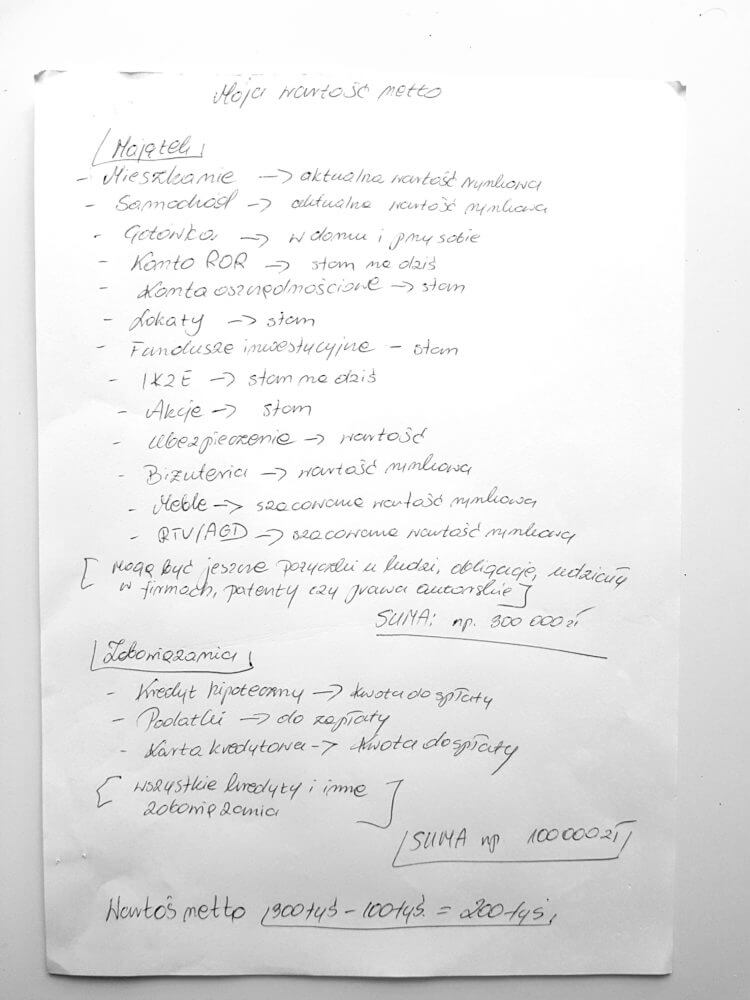 Moja wartość netto
Majątek
- Mieszkanie -> aktualna wartość rynkowa
- Samochód -> aktualna wartość rynkowa
- Gotówka -> w domu i przy sobie
- Konto ROR -> stan na dziś
- Konta oszczędnościowe -> stan
- Lokaty -> stan
- Fundusze inwestycyjne - stan
- IKZE -> stan na dziś
- Akcje -> stan
- Ubezpieczenie -> wartość
- Biżuteria -> wartość rynkowa
- Meble -> szacowana wartość rynkowa
- RTV/AGD -> szacowana wartość rynkowa
[ mogą być jeszcze pożyczki u ludzi, obligacje, udziały
w firmach, patenty czy prawa autorskie ]
SUMA: np. 300 000 zł
Zobowiązania
- Kredyt hipoteczny -> kwota do spłaty
- Podatki -> do zapłaty
- Karta kredytowa -> kwota do spłaty
[ wszystkie kredyty i inne
zobowiązania ]
SUMA np 100 000 zł
Wartoś netto 300 tyś - 100 tyś. = 200 tyś,